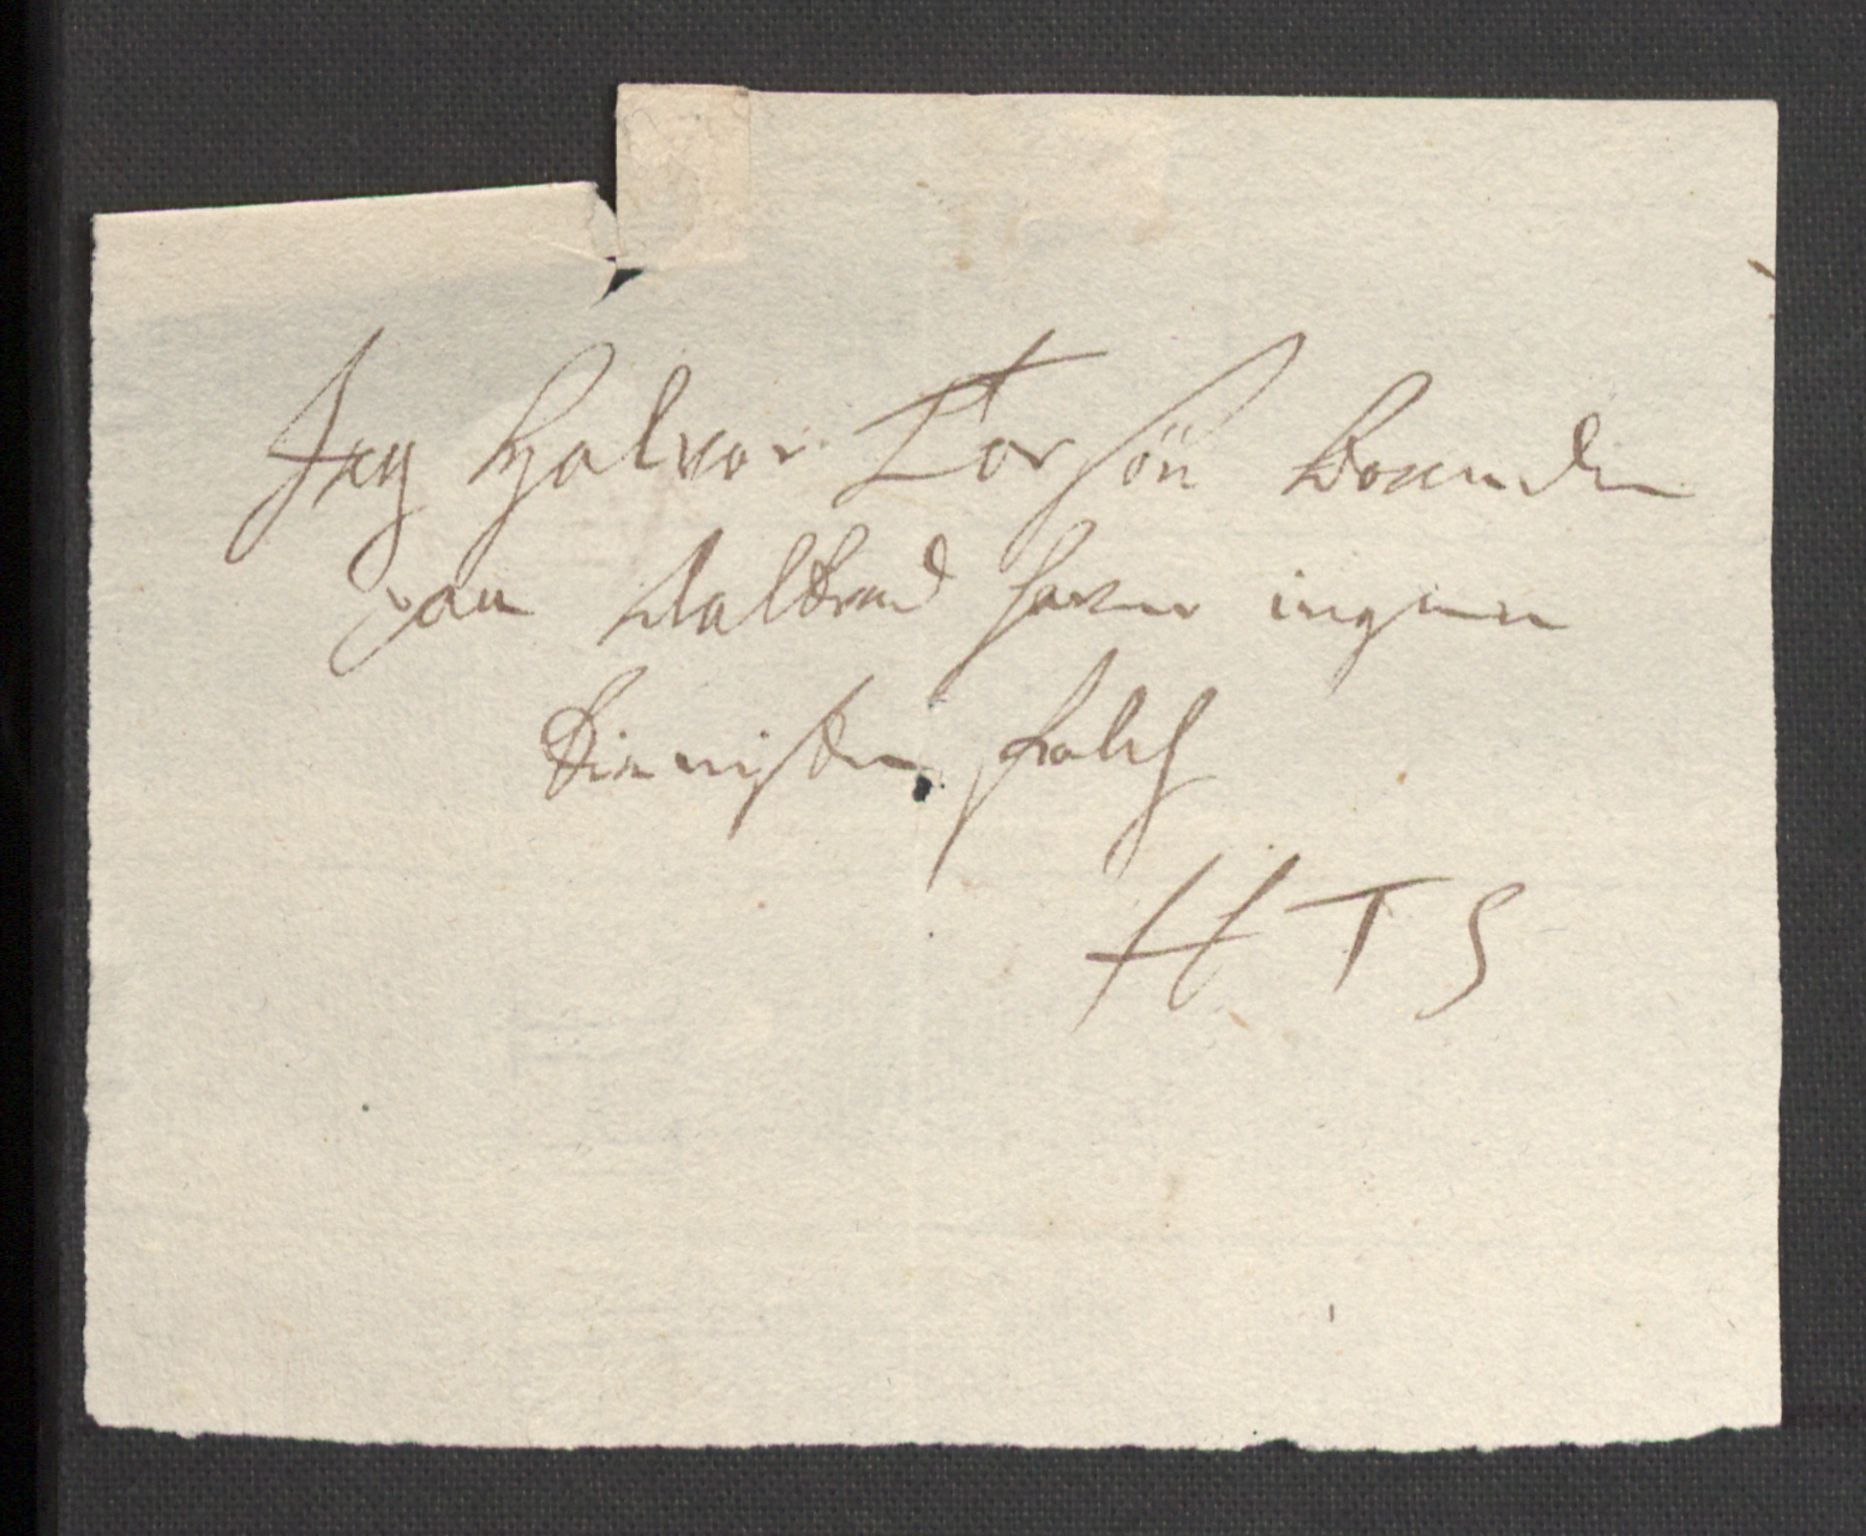 Jeg Halvor Torsön Boende
paa Aalbred haver ingen
tienniste folch
H T S